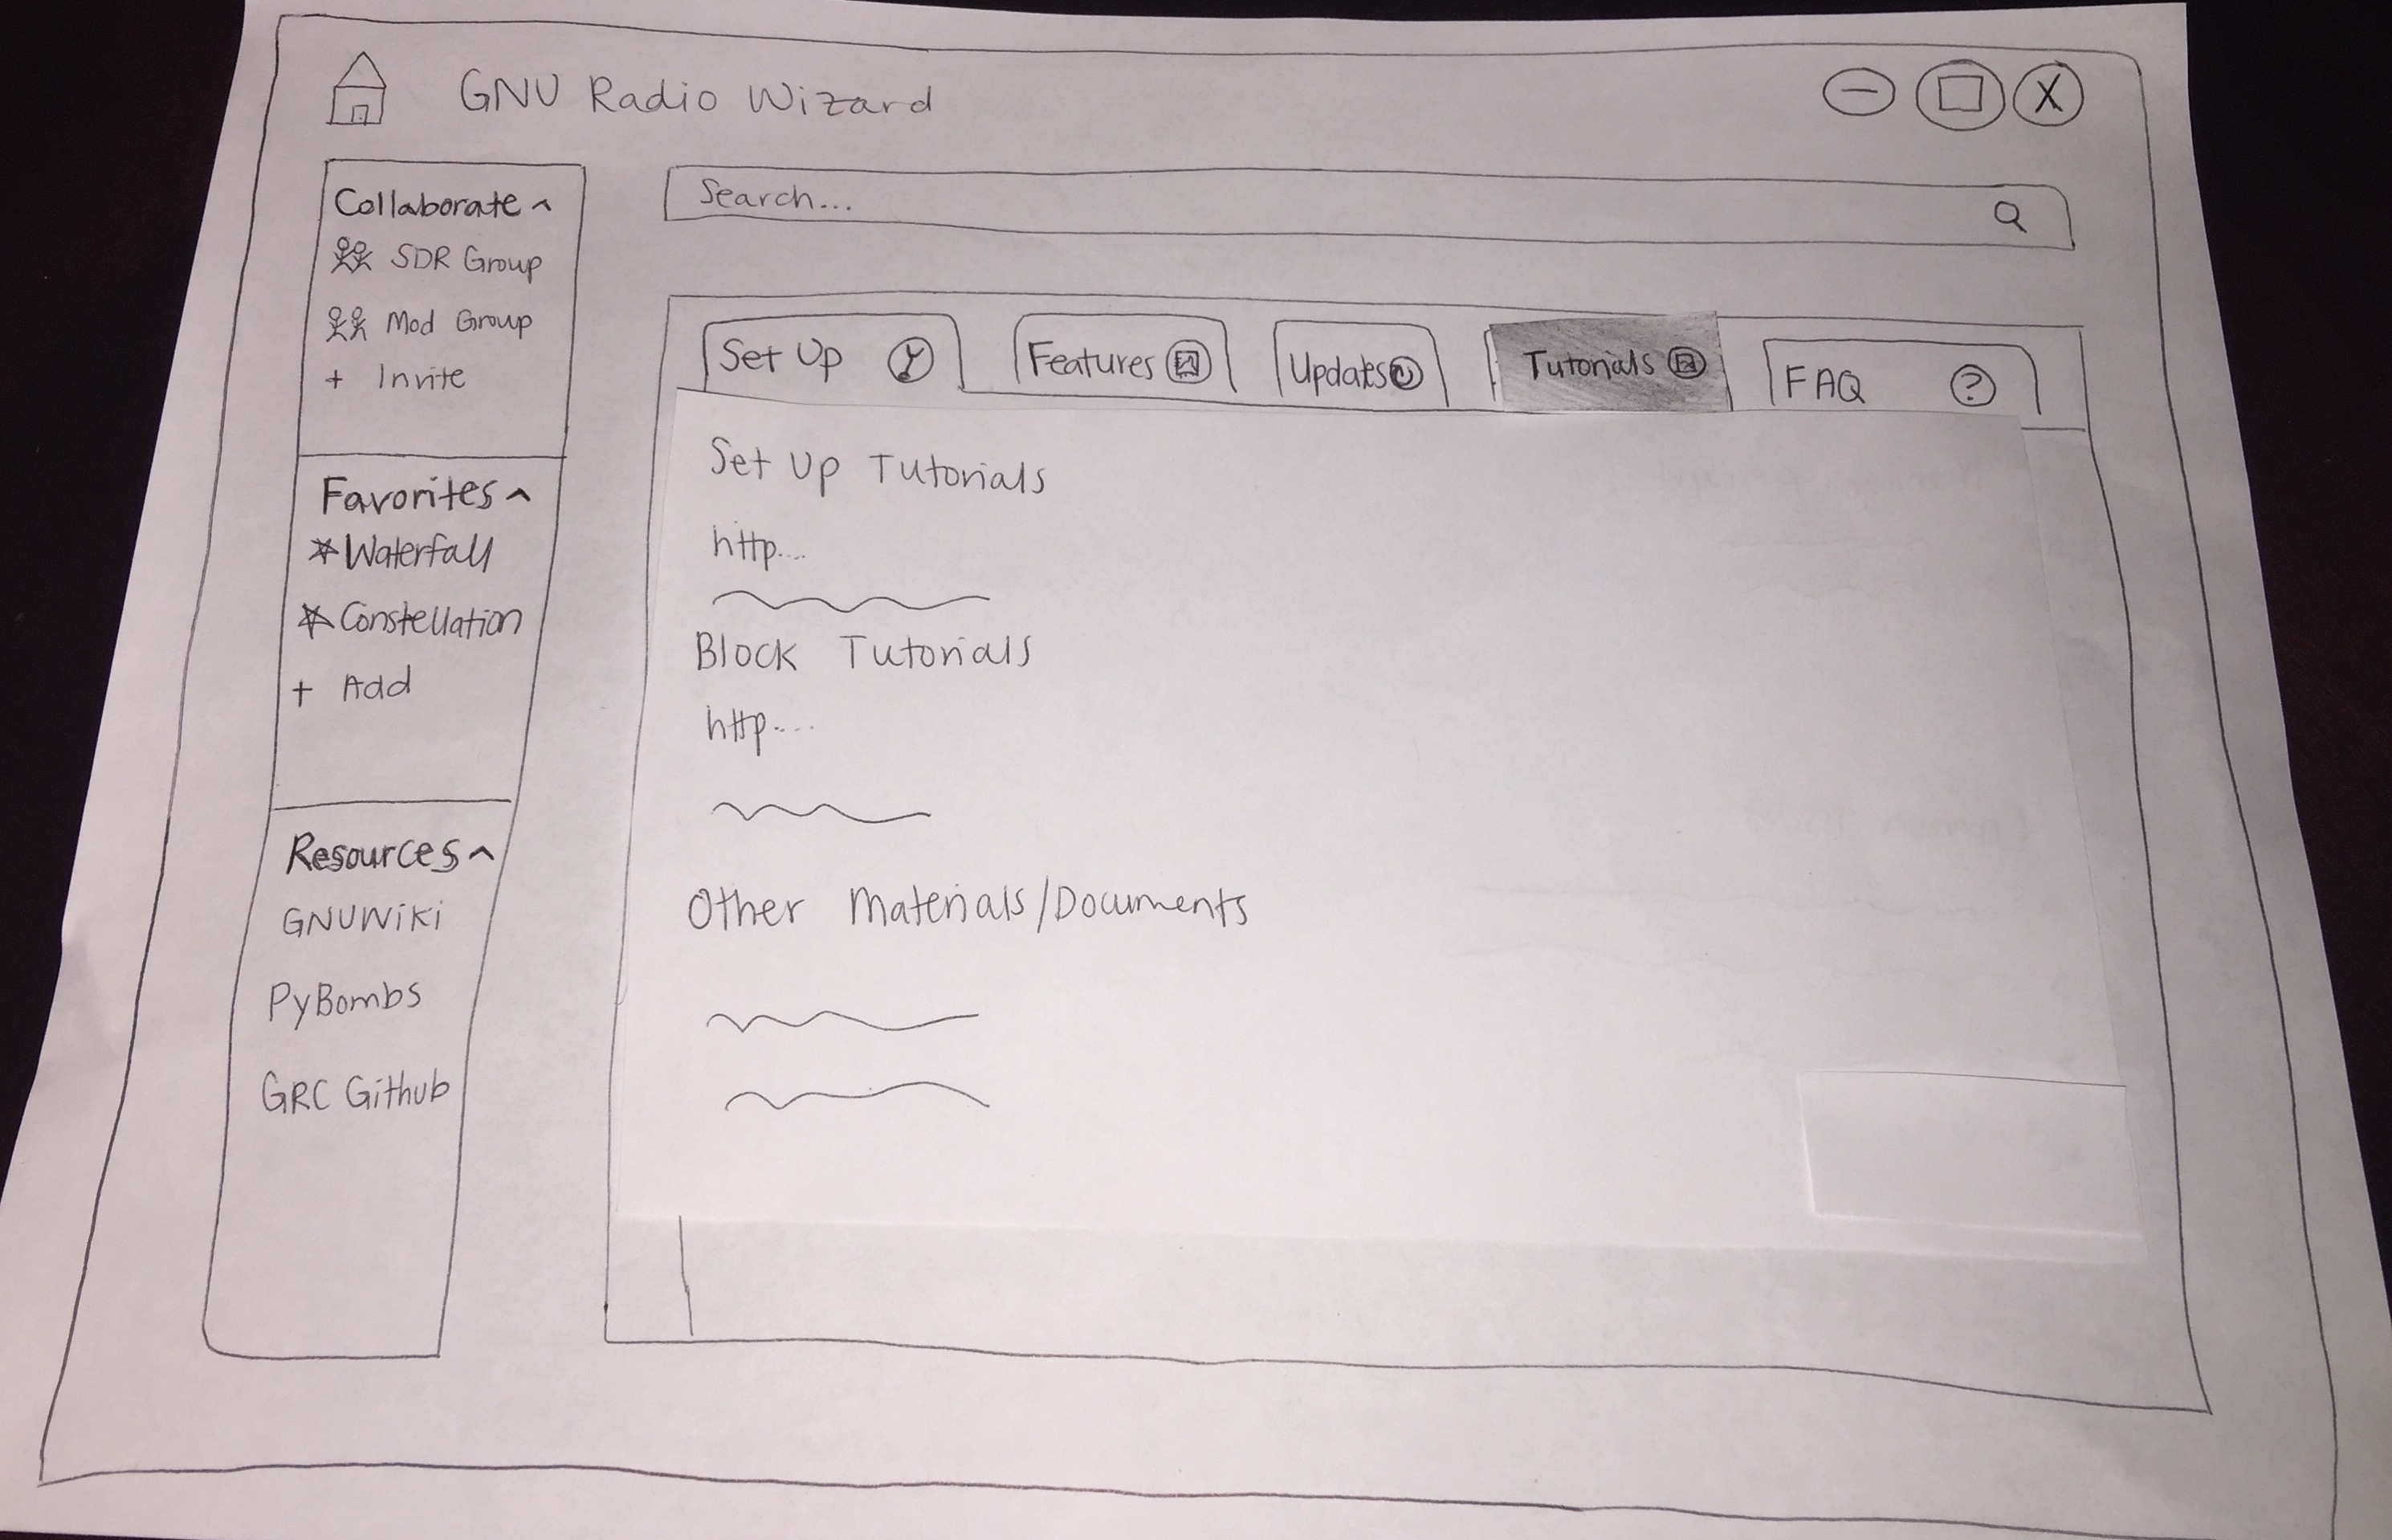 GNU Radio Wizard
X
Collaborate ^
SDR Group
Mod Group
+ Invite
Favorites ^
Waterfall
Constellation
+ Add
Resources ^
GNUWiki
PyBombs
GRC Github
Search...
Set Up
Features
Updates
Tutorials
FAQ ?
Set Up Tutorials
http....
Block Tutorials
http....
Other Materials/Documents